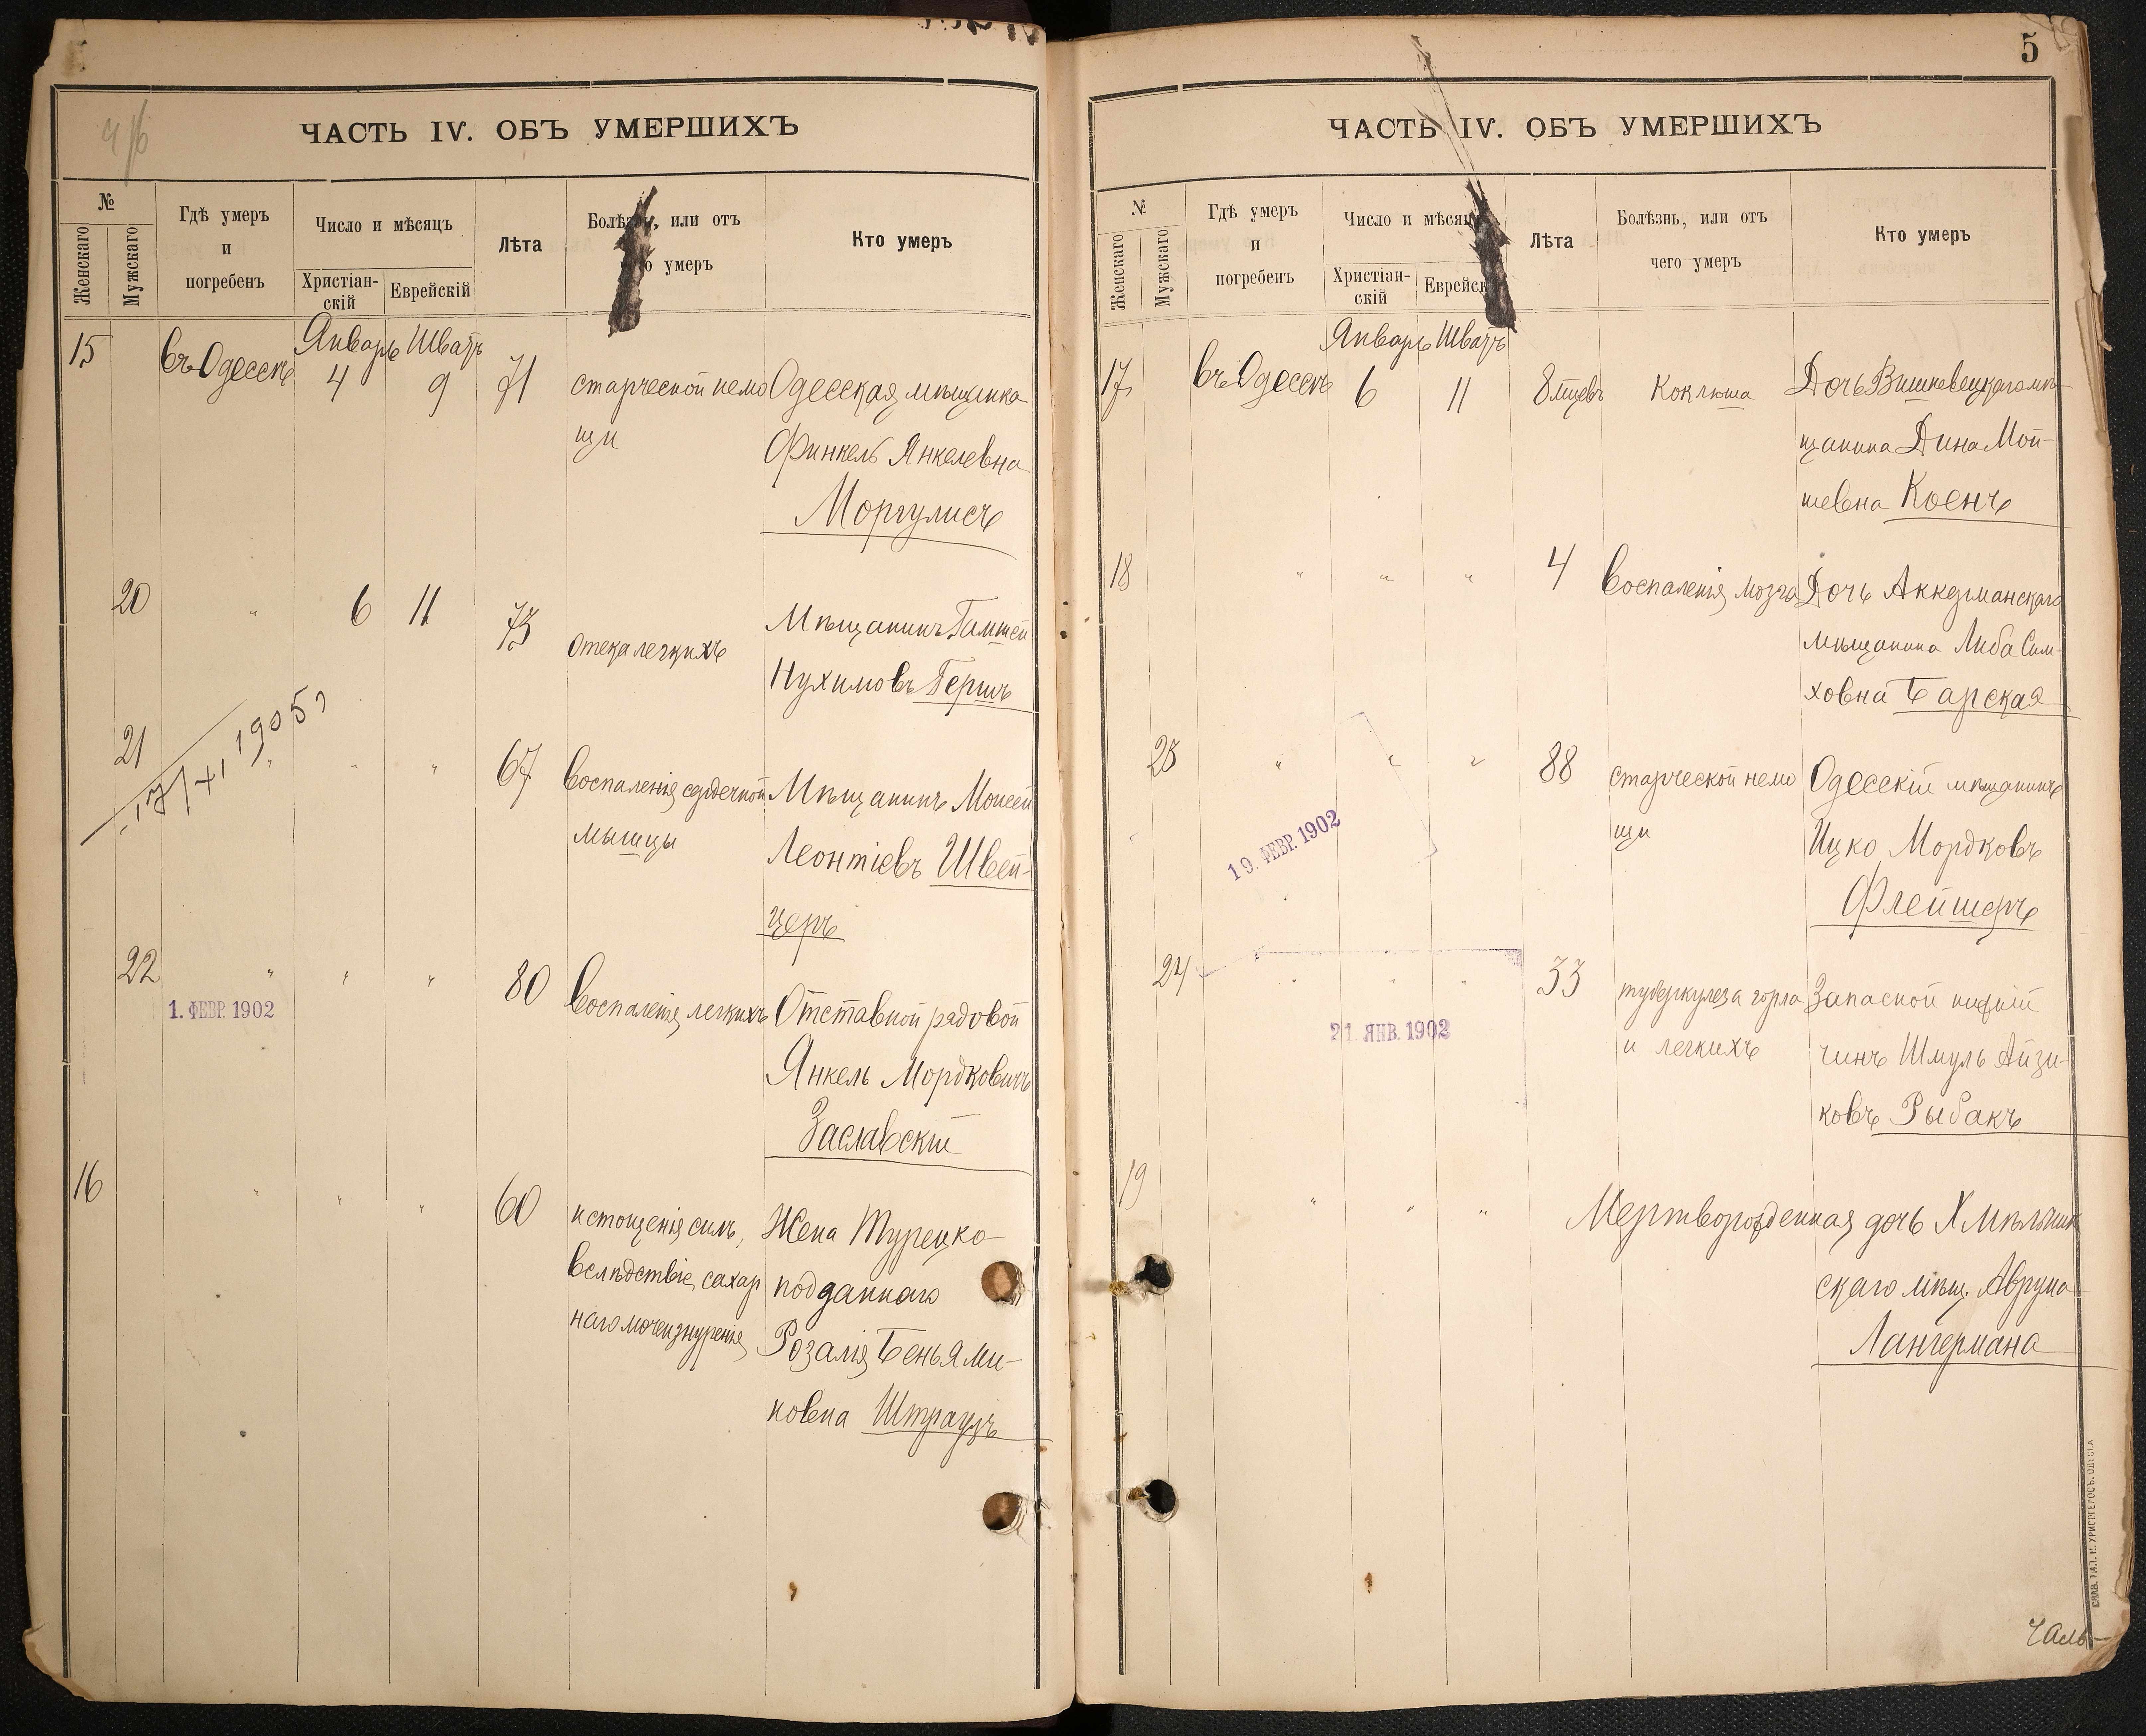 ЧАСТЬ IV. ОБЪ УМЕРШИХЪ
№
Женскаго
Мужскаго
Гдѣ умеръ
и
погребенъ
Число и мѣсяцъ
Христіан-
скій
Еврейскій
Лѣта
Болѣзнь, или отъ
чего умеръ
Кто умеръ
15
въ Одессѣ
Январь Шватъ
4 9 71
старческой немо
щи
Одесская мѣщанка
Финкель Янкелевна
Моргулисъ
20 " 6 11 73
отека легкихъ
Мѣщанинъ
Нухимовъ Гершъ
17/XI 1905 г
21 " " " 67
воспаленія сердечной
мышцы
Мѣщанинъ Моисей
Леонтіевъ Швей-
церъ
22 " " " 80
1. ФЕВР. 1902
воспаленія легкихъ
Отставной рядовой
Янкель Мордковичъ
Заславскій
16 " " " 60
истощенія силъ,
вслѣдствіе сахар
наго мочеизнуренія
Жена Турецко-
подданнаго
Розалія Беньями-
новна Штраузъ
5
ЧАСТЬ IV. ОБЪ УМЕРШИХЪ
№
Женскаго
Мужскаго
Гдѣ умеръ
и
погребенъ
Число и мѣсяцъ
Христіан-
скій
Еврейск
Лѣта
Болѣзнь, или отъ
чего умеръ
Кто умеръ
17
въ Одессѣ
Январь Шватъ
6 11 8 мцевъ
коклюша
Дочь Вишневецкаго мѣ-
щанина Дина Мой-
шевна Коенъ
18 " " " 4
воспаленія мозга
Дочь Аккерманскаго
мѣщанина Либа Сим-
ховна Барская
23 " " " 88
19. ФЕВР. 1902
старческой немо
щи
Одесскій мѣщанинъ
Ицко Мордковъ
Флейшеръ
24 " " " 33
21. ЯНВ. 1902
туберкулеза горла
и легкихъ
Запасной нижній
чинъ Шмуль Айзи-
ковъ Рыбакъ
19 " " "
Мертворожденная дочь Хмѣльник
скаго мѣщ. Аврума
Лангермана